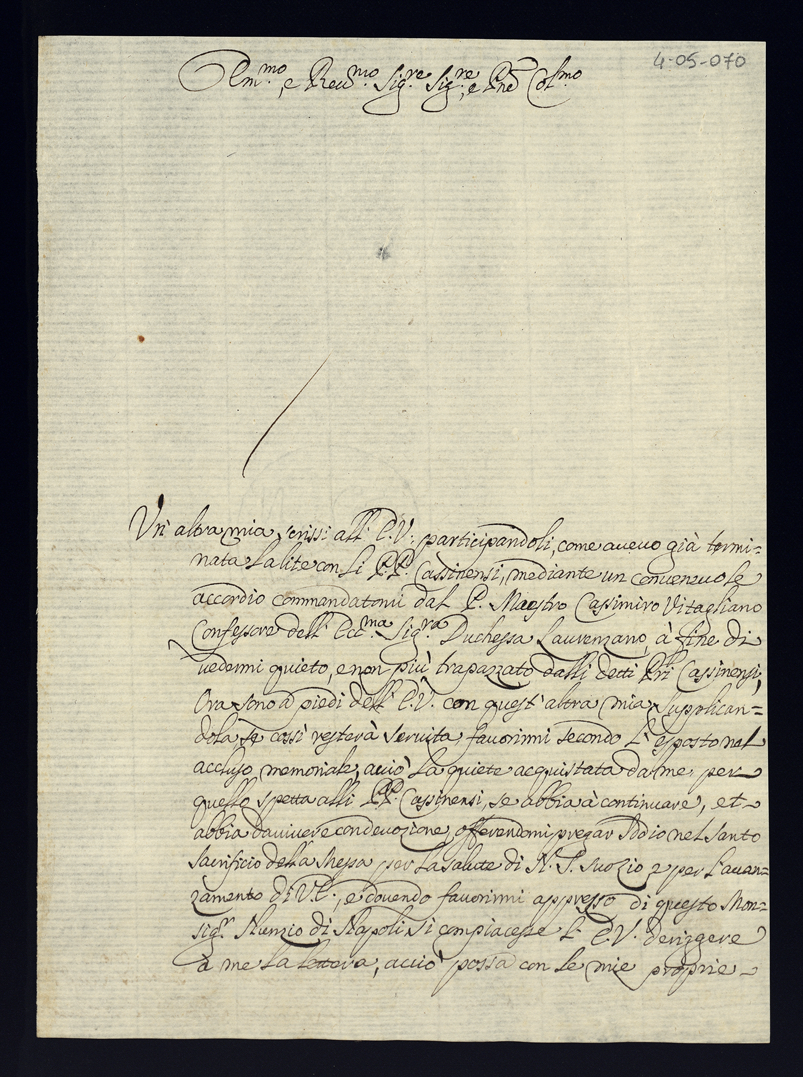 4-05-070
Em.mo e Rev.mo Sig.re Sig.re, e P̃ne Col.mo
Un altra mia scrissi all' E.V. participandoli, come avevo già termi=
nata la lite con li PP. Cassinensi, mediante un convenevole
accordio commandatomi dal P. Maestro Cassimiro Vitagliano
Confessore dell' Ecc.ma Sig.ra Duchessa Lauvenzano, à fine di
vedermi quieto, e non più trapazzato dalli detti Pri Cassinensi,
Ora sono a piedi dell' E.V. con quest' altra mia, supplican=
dola, se cossi resterà servita, favorirmi secondo l' esposto nel
accluso memoriale, acciò la quiete acquistata da me per
quello spetta alli PP. Cassinensi, se abbia à continuare, et
abbia da vivere con devozione, offerendomi pregar Iddio nel Santo
Sacrificio della Messa per la salute di N. S. suo Zio e per l'avan=
zamento di V.E., e dovendo favorirmi appresso di questo Mon=
sig.r Nunzio di Napoli si compiacesse l' E.V. deriggere
à me la lettera, acciò possa con le mie proprie